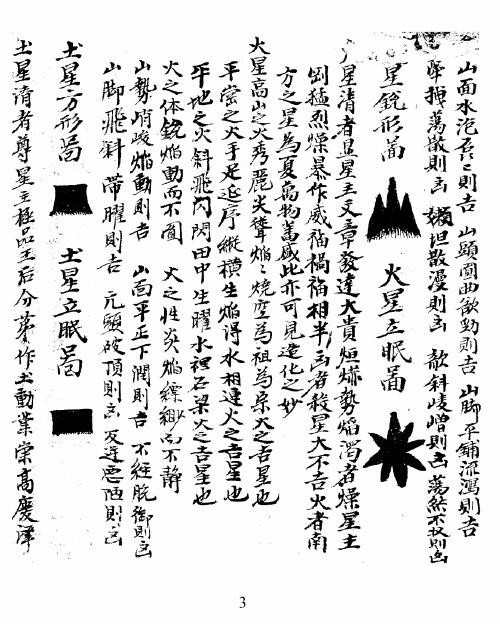 山面水泡多々則吉 山顕圓曲歛動則吉 山脚平鋪流瀉則吉
牽拽蕩散則凶 嬾坦散漫則凶 欹斜崚嶒則凶 蕩然不収則凶
星鋭形畐 火星立眠畐
星清者显星主文章發達大貴烜爀勢焰濁者燥星主
剛猛烈燥暴作威福禍福相半凶者殺星大不吉火者南
方之星為夏萬物蕃盛此亦可見造化之妙
火星高山之火秀麗尖聳焰々燒空為祖為宗火之吉星也
平崗之火手足延序縱横生焰得水相連火之吉星也
平地之火斜飛閃閃田中生曜水裡石梁火之吉星也
火之体鋭焰動而不圓 火之性炎焰縹緲而不静
山勢峭峻焰動則吉 山面平正下潤則吉 不經脱御則凶
山脚飛斜帶曜則吉 元頭破頂則凶 反逆悪陋則凶
土星方形畐 土星立眠畐
土星清者尊星主極品王后分茅作土勳業崇高慶澤
3